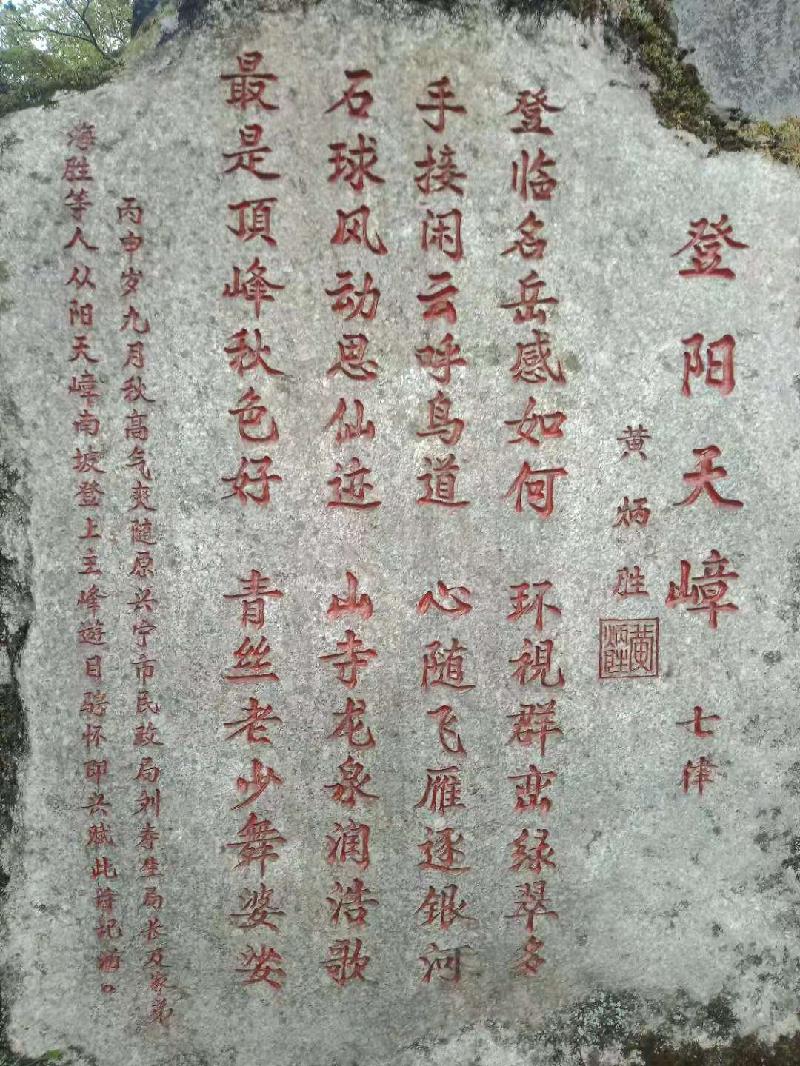 登阳天嶂 七律
黄炳胜
黄炳胜
登临名岳感如何 环視群峦绿翠多
手接闲云呼鸟道 心随飞雁逐银河
石球风动思仙迹 山寺龙泉润浩歌
最是頂峰秋色好 青丝老少舞婆娑
丙申岁九月秋高气爽随原兴宁市民政局刘春生局长及家弟
海胜等人从阳天嶂南坡登上主峰遊目骋怀即兴赋此诗记